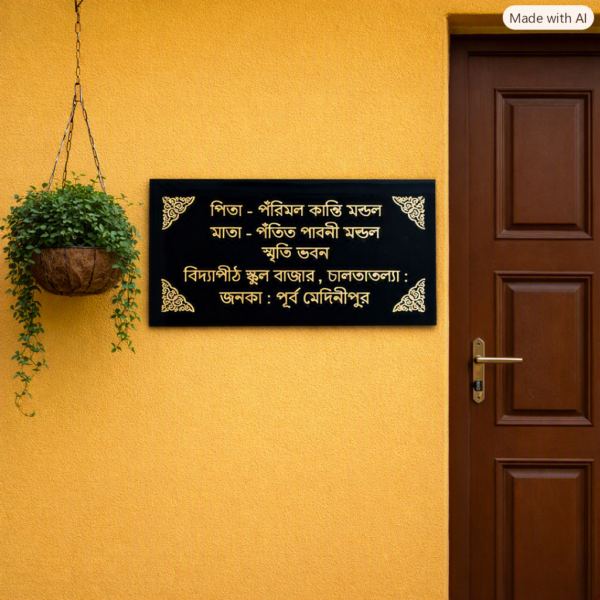 Made with AI
পিতা - পঁরিমল কান্তি মন্ডল
মাতা - পঁতিত পাবনী মন্ডল
স্মৃতি ভবন
বিদ্যাপীঠ স্কুল বাজার , চালতাতল্যা :
জনকা : পূর্ব মেদিনীপুর